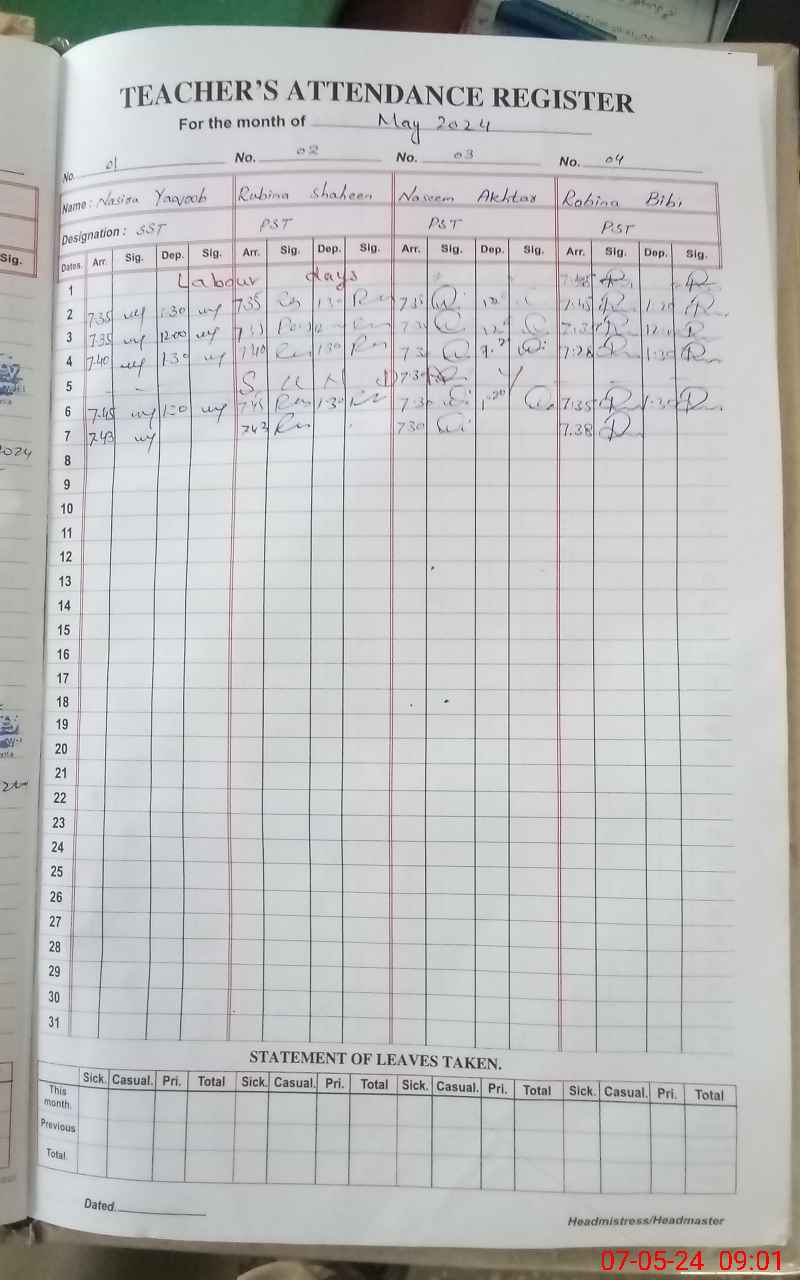 TEACHER'S ATTENDANCE REGISTER
For the month of May 2024
No. 01 No. 02 No. 03 No. 04
Name: Nasira Yaqoob Rubina Shaheen Naseem Akhtar Robina Bibi
Designation: SST PST PST PST
Sig. Dates. Arr. Sig. Dep. Sig. Arr. Sig. Dep. Sig. Arr. Sig. Dep. Sig. Arr. Sig. Dep. Sig.
1 Labour days
2 7.35 1:30 7.35 1:30 7.45 1:20
3 7.35 12:00
4 7.40 1:30 7.40 1:30 7.28 1:30
5 S U N
6 7.45 7.45 1:30 7.30 1:20 7.35 1:30
7 7.43 7.43 7.30 7.38
2024
8
9
10
11
12
13
14
15
16
17
18
19
20
21
22
23
24
25
26
27
28
29
30
31
STATEMENT OF LEAVES TAKEN.
Sick. Casual. Pri. Total Sick. Casual. Pri. Total Sick. Casual. Pri. Total Sick. Casual. Pri. Total
This month.
Previous
Total.
Dated.
Headmistress/Headmaster
07-05-24 09:01